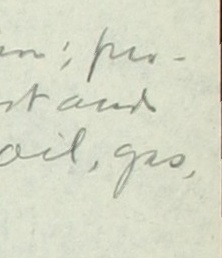 ; pro-
and
oil, gas,